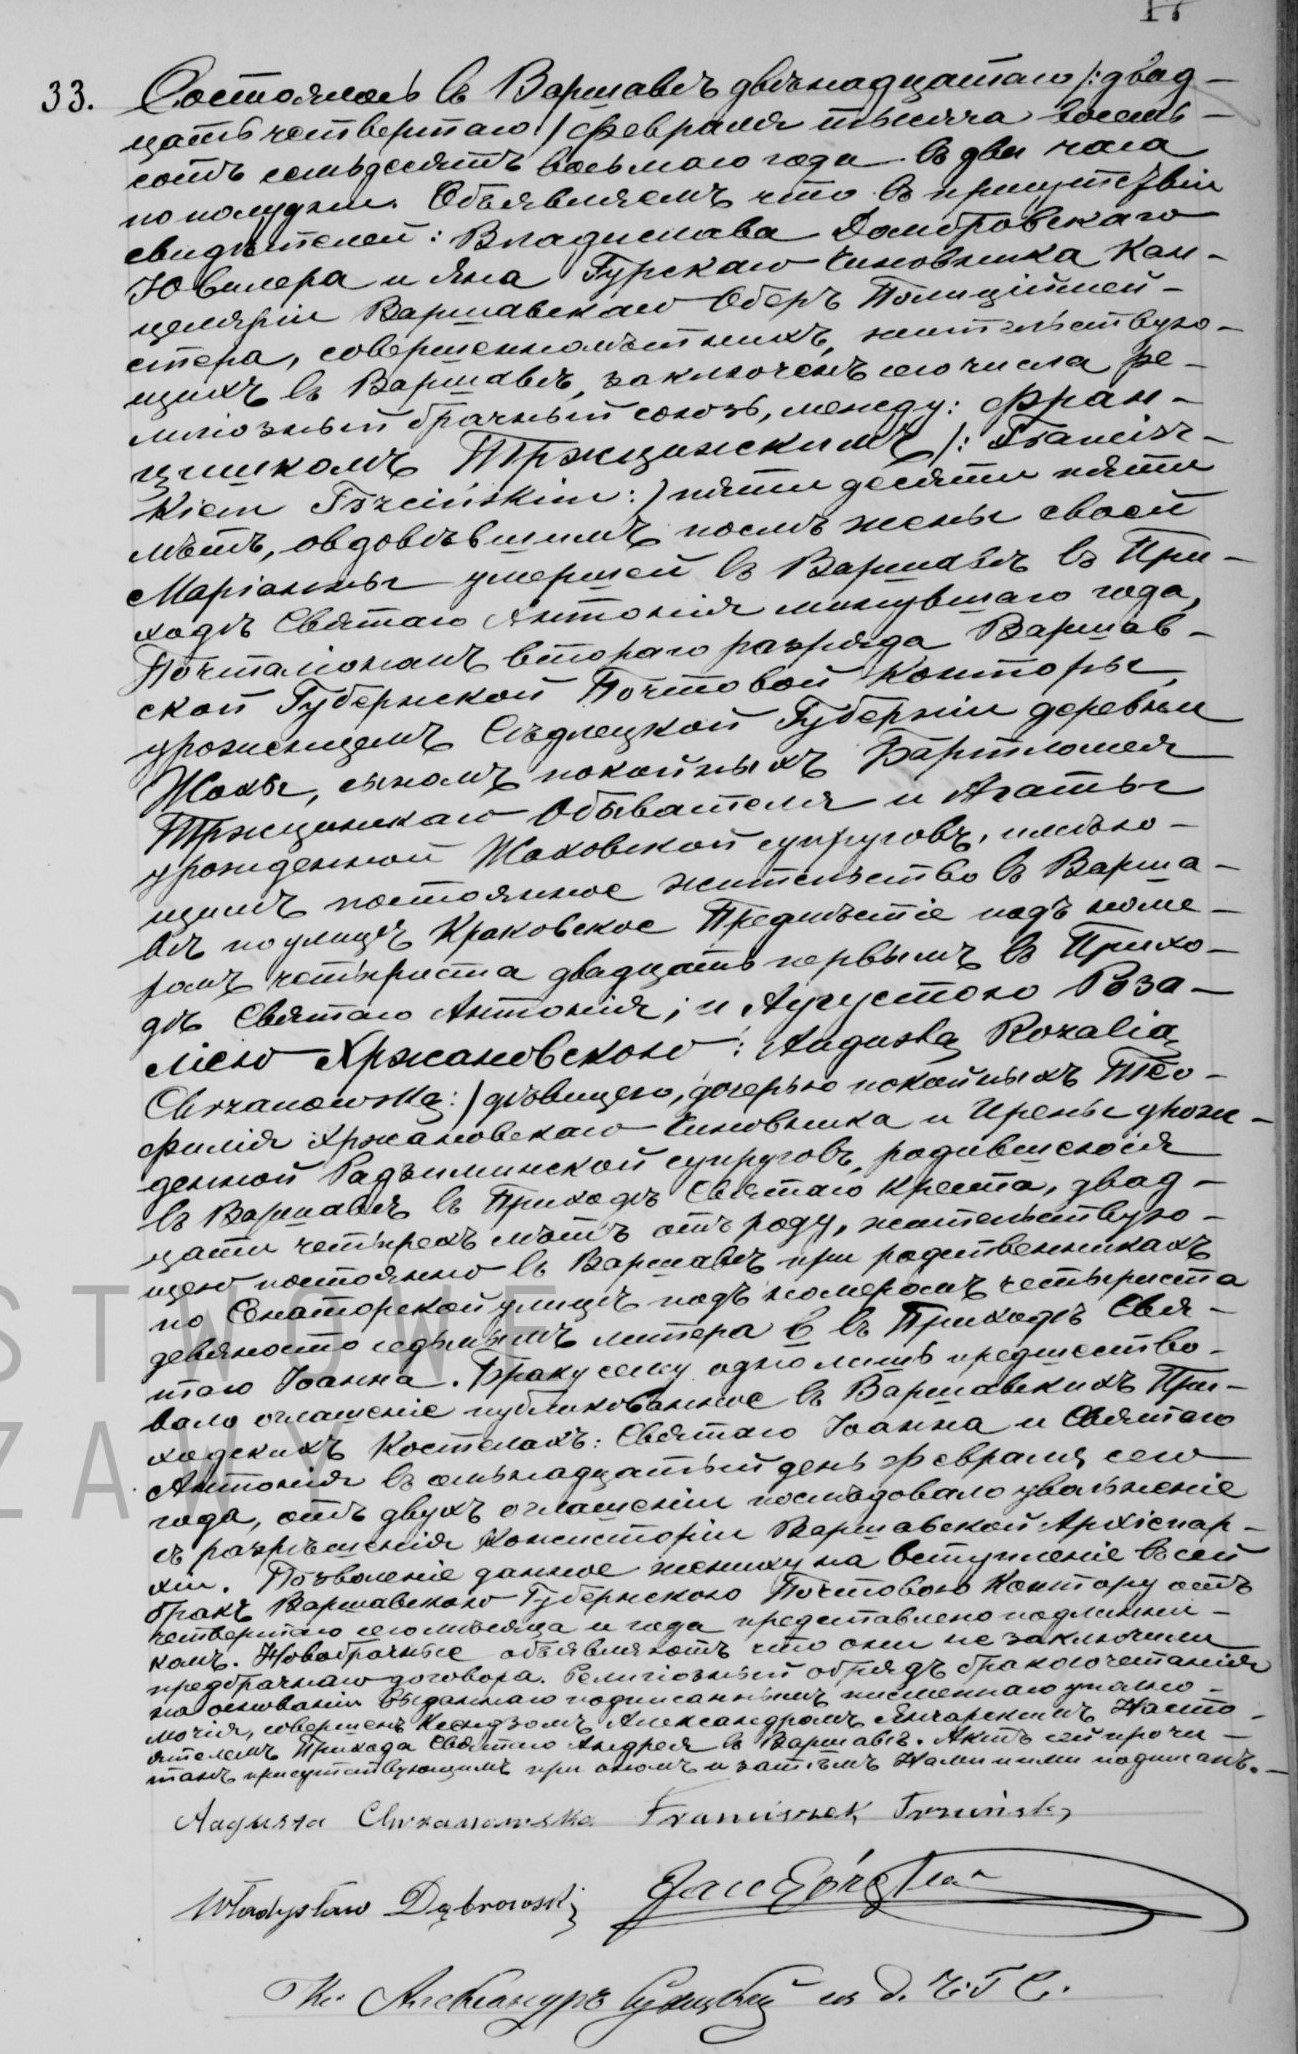 17
33. Состоялось въ Варшавѣ двѣнадцатаго /: двад-
цать четвертаго :/ Февраля тысяча восемь-
сотъ семьдесятъ восьмаго года въ два часа
по полудни. Объявляемъ что въ присутствіи
свидѣтелей: Владислава Домбровскаго
Ювилера и Яна Гурскаго Чиновника Кан-
целяріи Варшавскаго Оберъ Полиціймей-
стера, совершеннолѣтнихъ, жительствую-
щихъ въ Варшавѣ, заключенъ сего числа ре-
лигіозный брачный союзъ, между: Фран-
цишкомъ Тржцинскимъ /: Francisz-
kiem Trzcińskim :/ пяти десяти пяти
лѣтъ, овдовѣвшимъ послѣ жены своей
Маріанны умершей въ Варшавѣ въ При-
ходѣ Святаго Антонія минувшаго года,
Почталіономъ втораго разряда Варшав-
ской Губернской Почтовой Конторы,
урожденцемъ Сѣдлецкой Губерніи деревни
Жохы, сыномъ покойныхъ Бартломея
Тржцинскаго Обывателя и Агаты
урожденной Жоховской супруговъ, имѣю-
щимъ постоянное жительство въ Варша-
вѣ по улицѣ Краковское Предмѣстіе подъ номе-
ромъ четыриста двадцать первымъ въ Прихо-
дѣ Святаго Антонія; и Аугустою Роза-
ліею Хржановскою /: Augustą Rozalią
Chrzanowską :/ дѣвицею, дочерью покойныхъ Тео-
филія Хржановскаго Чиновника и Ирены урож-
денной Радзыминской супруговъ, родившеюся
въ Варшавѣ въ Приходѣ Святаго Креста, двад-
цати четырехъ лѣтъ отъ роду, жительствую-
щею постоянно въ Варшавѣ при родственникахъ
по Сенаторской улицѣ подъ номеромъ четыриста
девяносто седьмымъ литера b въ Приходѣ Свя-
таго Іоанна. Браку сему одно лишь предшество-
вало оглашеніе публикованное въ Варшавскихъ При-
ходскихъ Костелахъ: Святаго Іоанна и Святаго
Антонія въ семьнадцатый день Февраля сего
года, отъ двухъ оглашеніи послѣдовало увольненіе
съ разрѣшенія Консисторіи Варшавской Архіепар-
хіи. Позволеніе данное жениху на вступленіе въ сей
бракъ Варшавскою Губернскою Почтовою Контору отъ
четвертаго сего мѣсяца и года представлено подлинни-
комъ. Новобрачные объявляютъ что они не заключили
предбрачнаго договора. Религіозный обрядъ бракосочетанія
на основаніи выданнаго подписаннымъ письменнаго уполно-
мочія, совершенъ Ксендзомъ Александромъ Янчарскимъ Насто-
ятелемъ Прихода Святаго Андрея въ Варшавѣ. Актъ сей прочи-
танъ присутствующимъ при ономъ и затѣмъ Нами и ими подписанъ.
Augusta Chrzanowska Franciszek Trzciński
Władysław Dąbrowski Jan Górski
Кс. Александръ
STWOWE
ZAWY